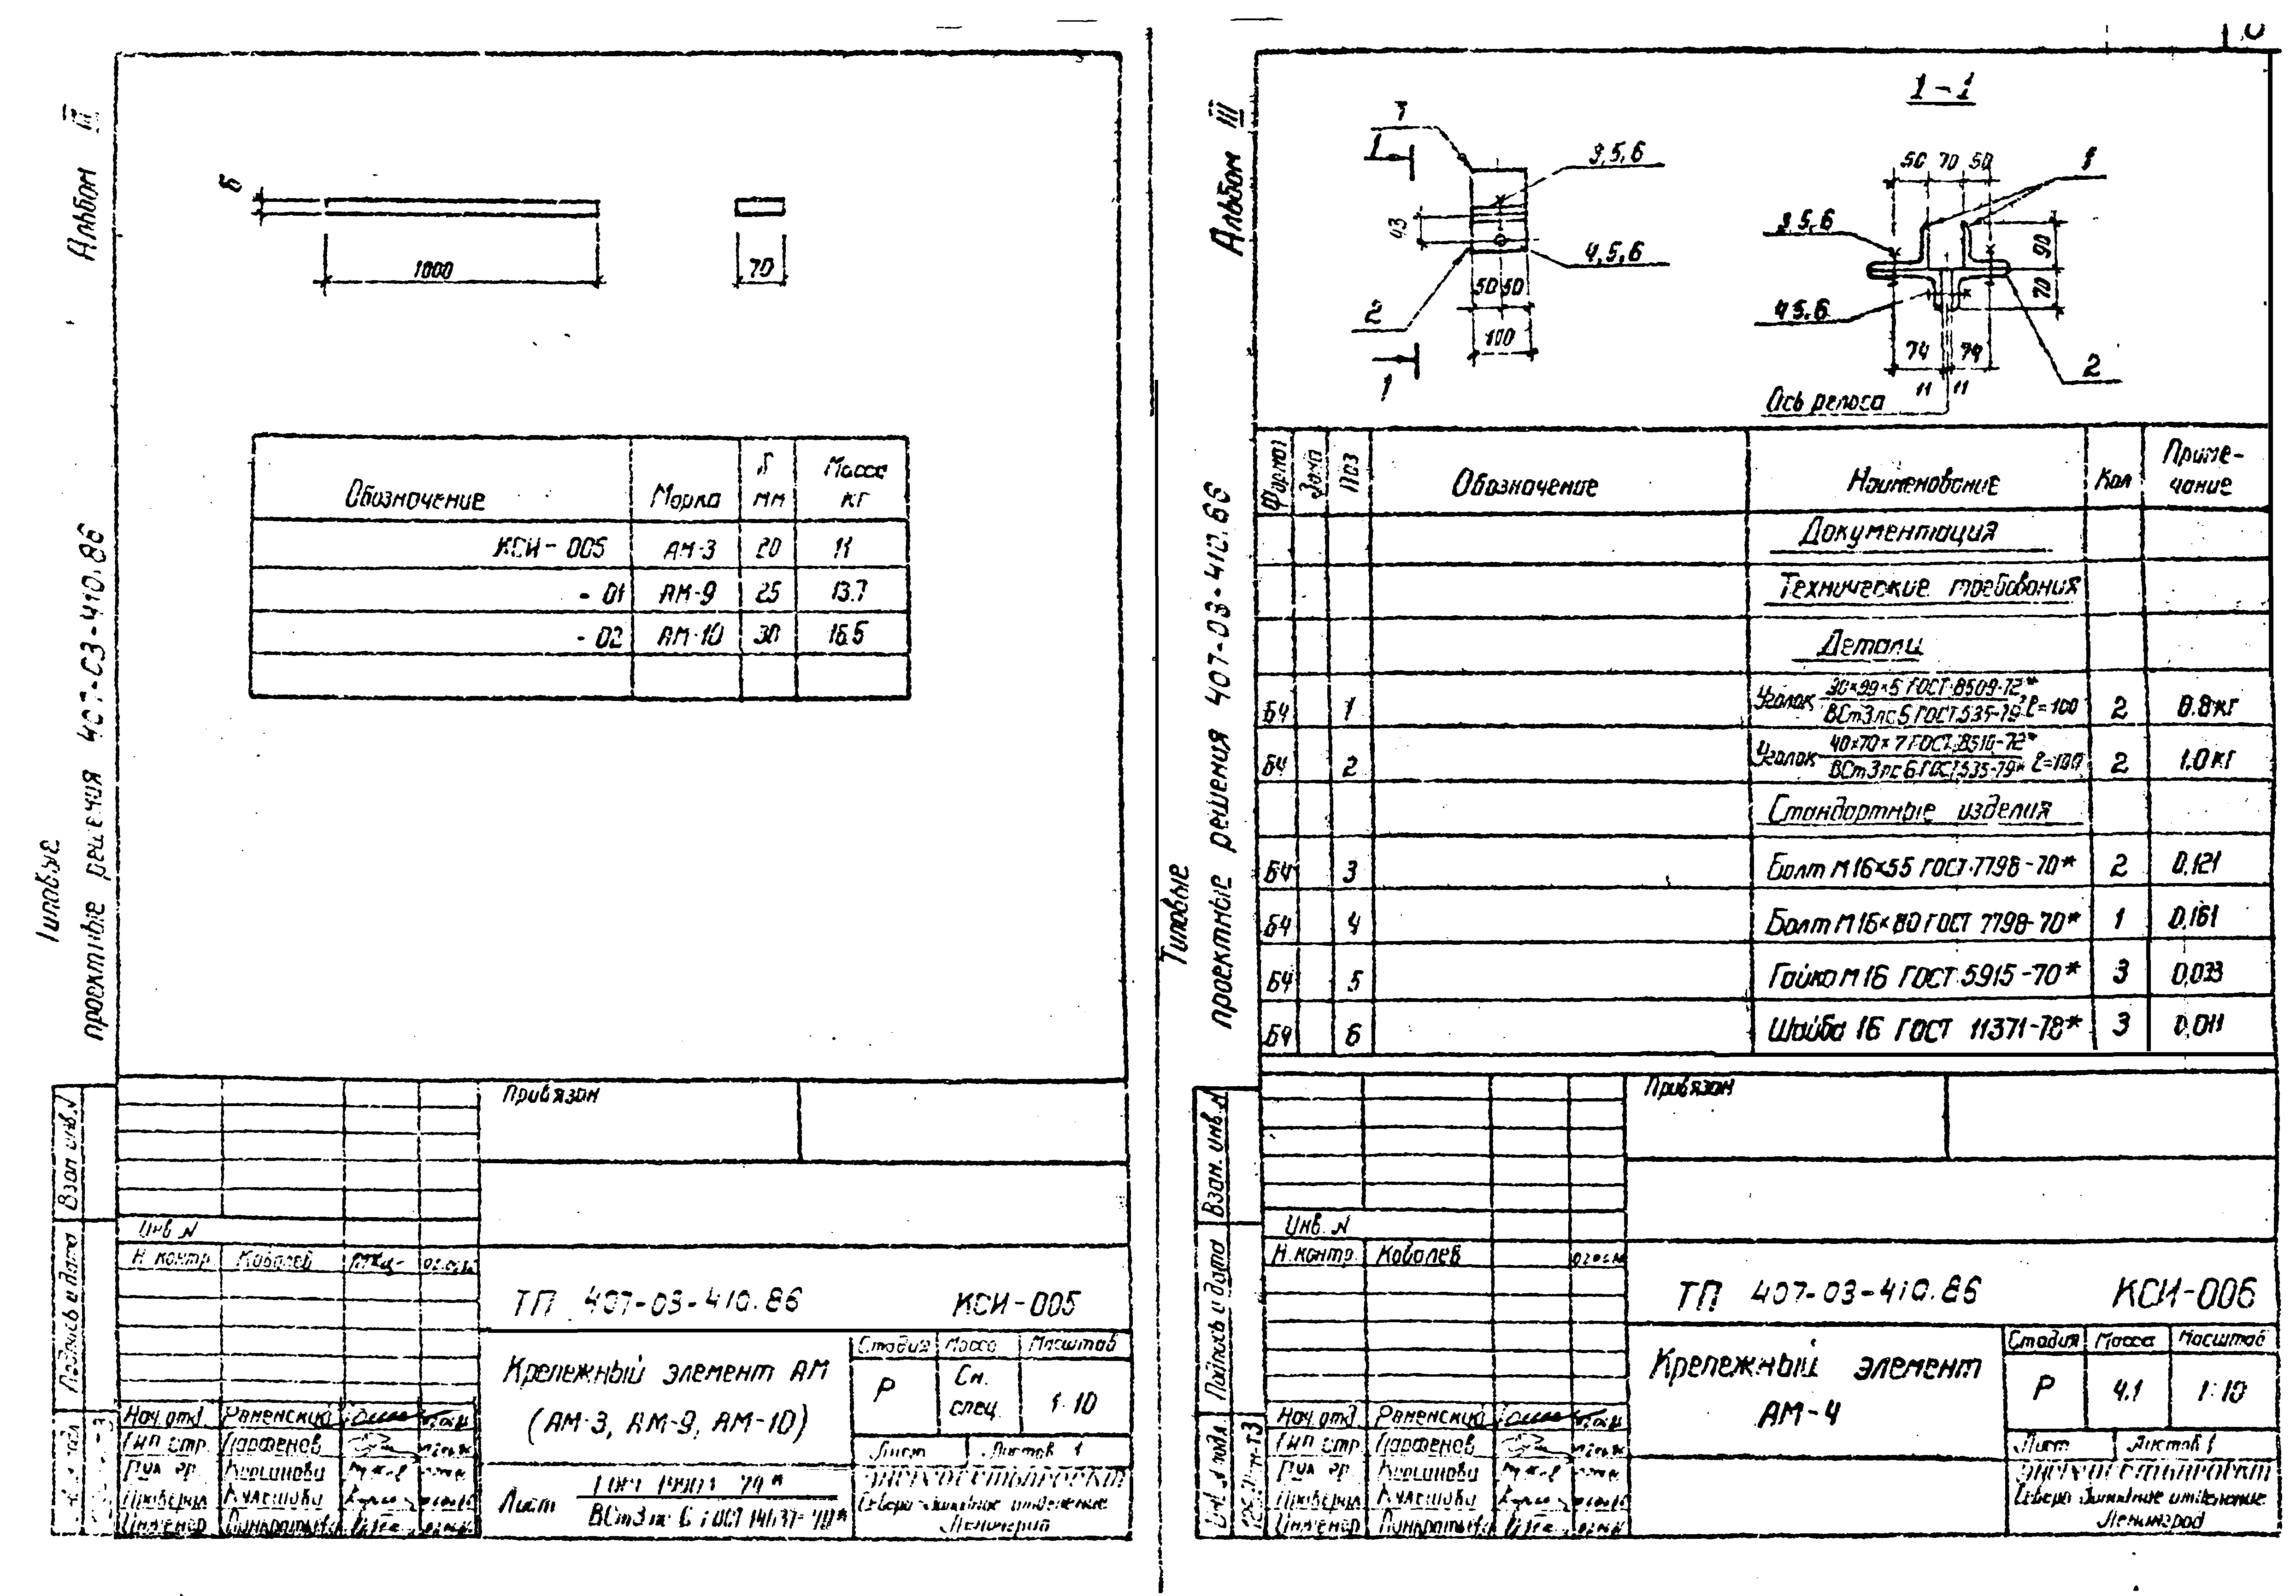 Альбом III
Типовые
проектные решения 407-03-410.86
б
1000
70
Обозначение
Марка
б мм
Масса кг
КСИ-005 АМ-3 20 11
-01 АМ-9 25 13.7
-02 АМ-10 30 16.5
Привязан
Взам. инв. N
Подпись и дата
Инв. N
Н. контр. Ковалев
ТП 407-03-410.86 КСИ-005
Крепежный элемент АМ
(АМ-3, АМ-9, АМ-10)
Стадия Масса Масштаб
Р См. спец. 1:10
Лист Листов 1
Нач. отд. Раменский
ГИП стр. Парфенов
Проверил Кулешова
Инженер
Лист
Северо-Западное отделение
Ленинград
Альбом III
Типовые
проектные решения 407-03-410.86
1-1
1
1
3,5,6
43
4,5,6
2
50 50
100
1
50 70 50
1
3,5,6
90
70
4,5,6
74 74
11 11
2
Ось релоса
Формат Зона Поз Обозначение Наименование Кол Примечание
Документация
Технические требования
Детали
БЧ 1 Уголок 90×90×5 ГОСТ 8509-72* ВСт3пс5 ГОСТ 535-79 ℓ=100 2 0.8кг
БЧ 2 Уголок 40×70×7 ГОСТ 8510-72* ВСт3пс6 ГОСТ 535-79* ℓ=100 2 1.0кг
Стандартные изделия
БЧ 3 Болт М16×55 ГОСТ 7798-70* 2 0,121
БЧ 4 Болт М16×80 ГОСТ 7798-70* 1 0,161
БЧ 5 Гайка М16 ГОСТ 5915-70* 3 0,033
БЧ 6 Шайба 16 ГОСТ 11371-78* 3 0,011
Привязан
Взам. инв. N
Подпись и дата
Инв. N подл
Инв. N
Н. контр. Ковалев
ТП 407-03-410.86 КСИ-006
Крепежный элемент
АМ-4
Стадия Масса Масштаб
Р 4.1 1:10
Лист Листов 1
Нач. отд. Раменский
ГИП стр. Парфенов
Проверил Кулешова
Инженер
Северо-Западное отделение
Ленинград